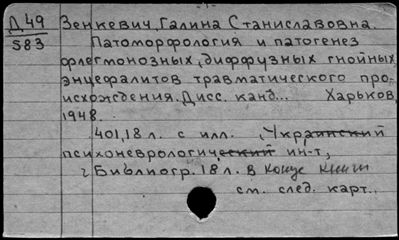 Д 49 Зенкевич, Галина Станиславовна.
583 Патоморфология и патогенез
флегмонозных, диффузных гнойных
энцефалитов травматического про-
исхождения. Дисс. канд... Харьков,
1948.
401,18 л. с илл. (Украинский
психоневрологический ин-т,
Библиогр. 18 л. в конце книги
см. след. карт.